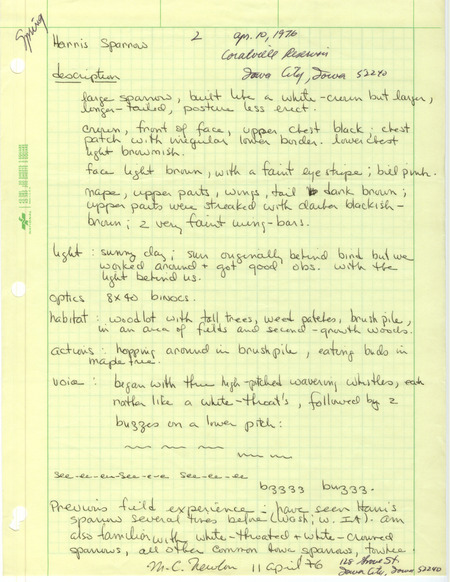 Spring
Harris Sparrow 2 apr. 10, 1976
Coralville Reservoir
Iowa City, Iowa 52240
description
large sparrow, built like a white-crown but larger,
longer-tailed, posture less erect.
crown, front of face, upper chest black; chest
patch with irregular lower border. lower chest
light brownish.
face light brown, with a faint eye stripe; bill pink.
nape, upper parts, wings, tail dark brown;
upper parts were streaked with darker blackish-
brown; 2 very faint wing-bars.
light: sunny day; sun originally behind bird but we
worked around + got good obs. with the
light behind us.
optics 8x40 binocs.
habitat: woodlot with tall trees, weed patches, brushpile,
in an area of fields and second-growth woods.
actions: hopping around in brushpile, eating buds in
maple tree.
voice: began with three high-pitched wavering whistles, each
rather like a white-throat's, followed by 2
buzzes on a lower pitch:
see-ee-ee see-e-e see-ee-ee
bzzzz buzzz.
Previous field experience - have seen Harris
sparrow several times before (Wash; w. IA). am
also familiar with white-throated + white-crowned
sparrows, all other common Iowa sparrows, towhee.
M.C. Newlon 11 April 76 128 St.
Iowa City, Iowa 52240